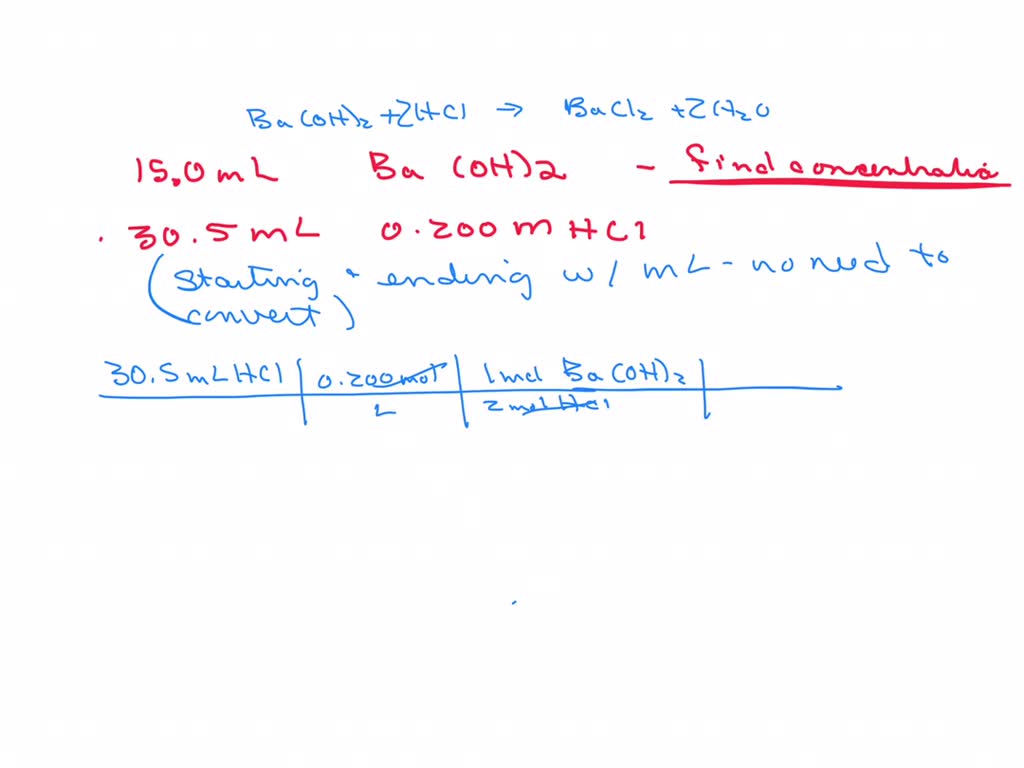 Ba(OH)2 + 2HCl → BaCl2 + 2H2O
15.0 mL Ba (OH)2 - find concentration
. 30.5 mL 0.200 M HCl
(starting + ending w/ mL - no need to
convert)
30.5 mL HCl | 0.200 mol | 1 mol Ba(OH)2 |
L | 2 mol HCl |